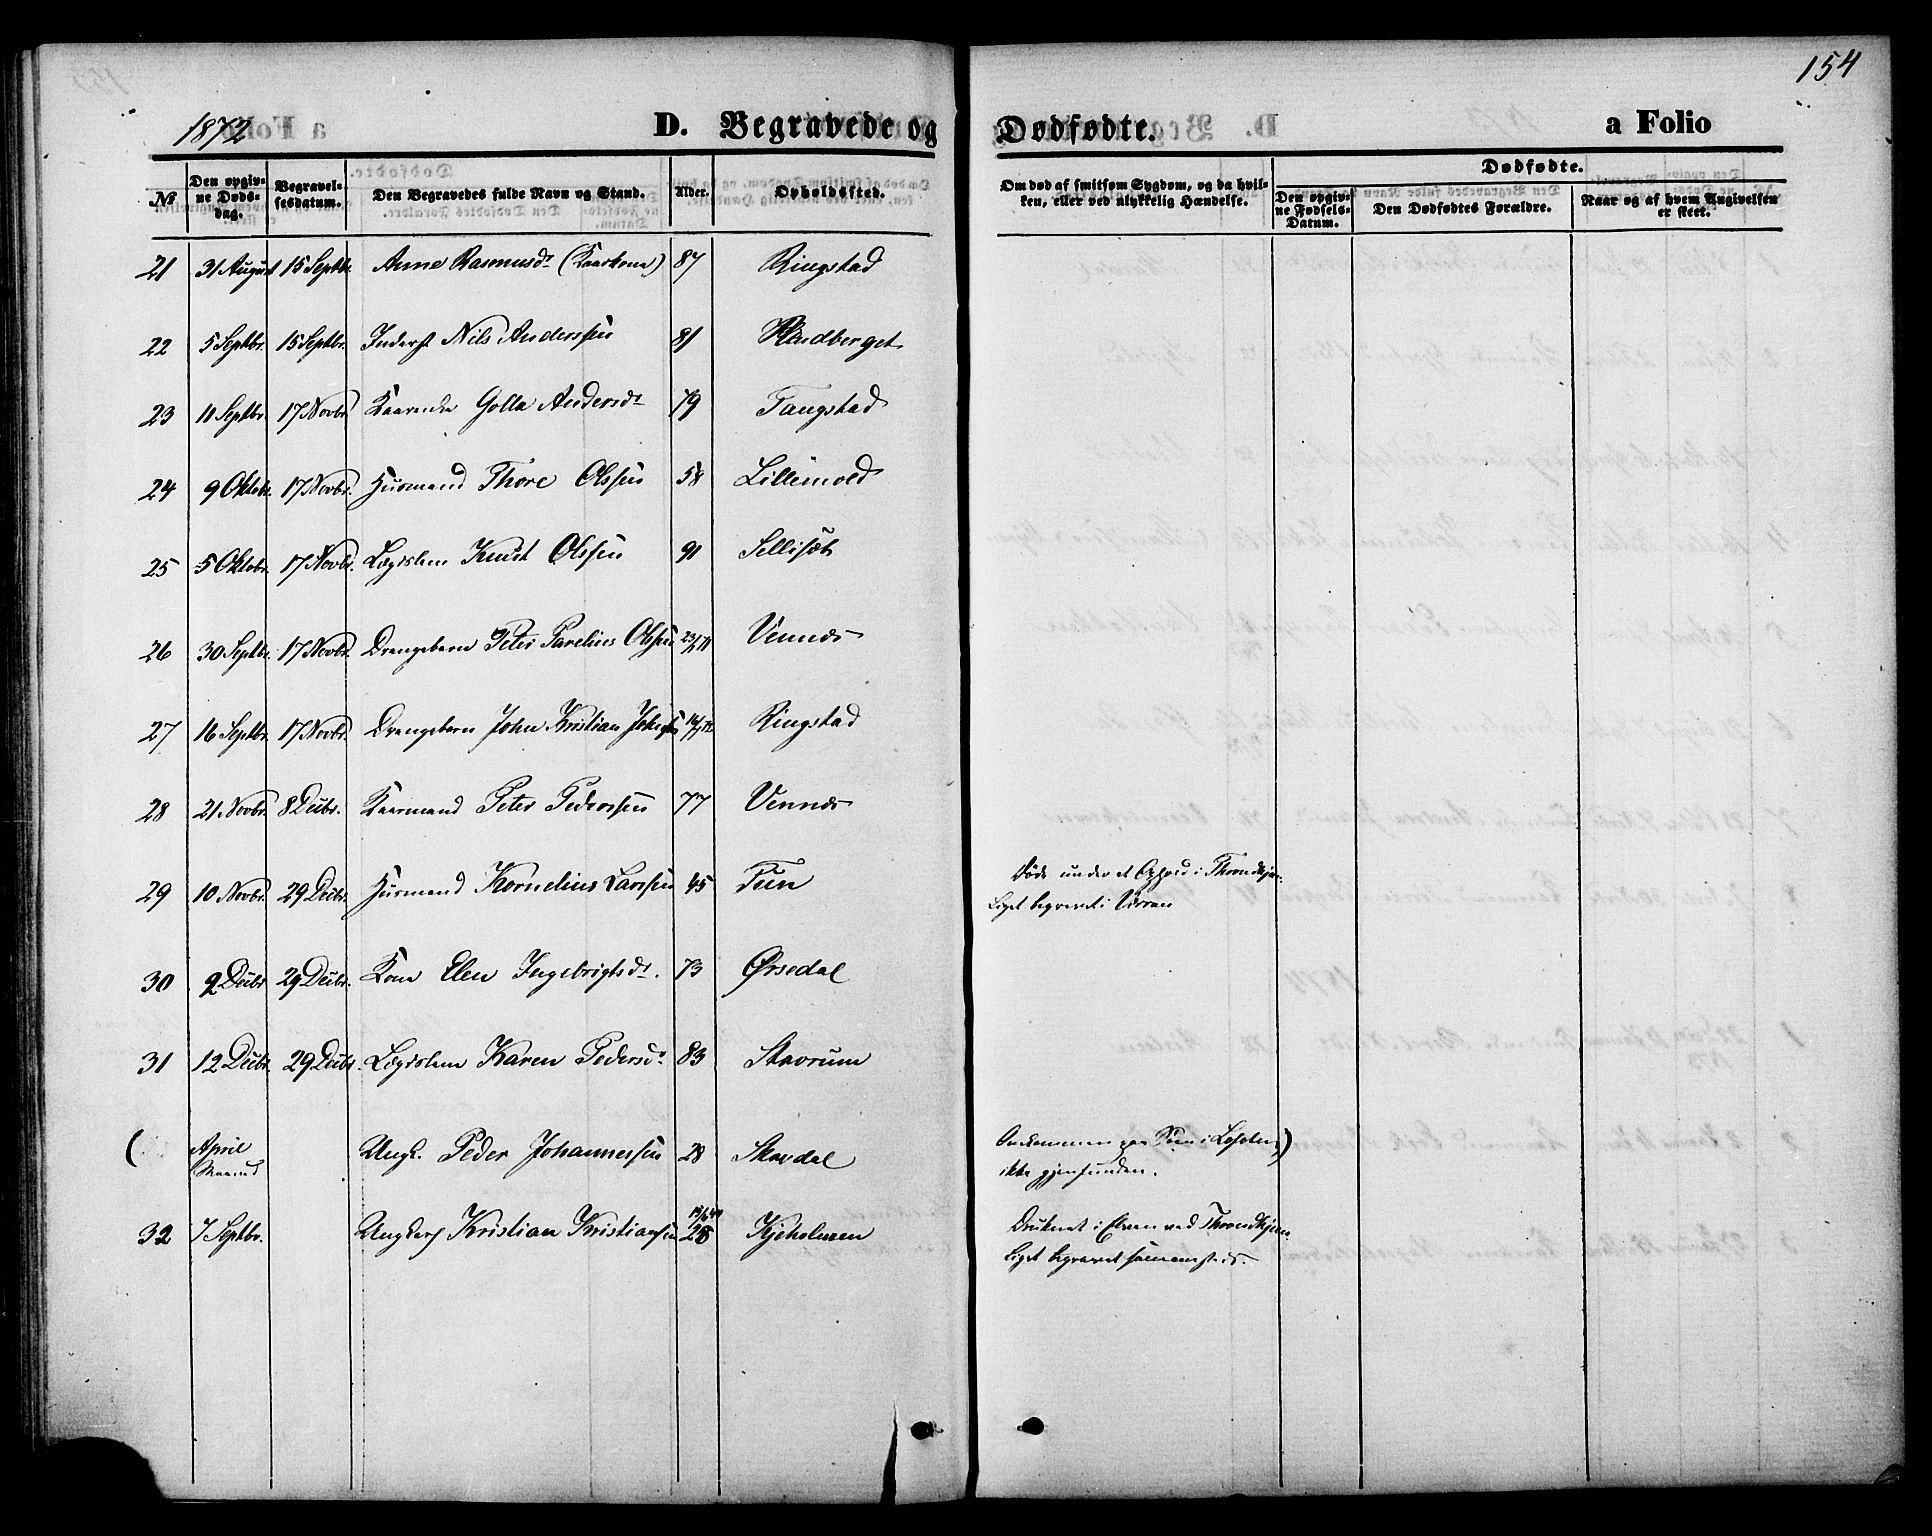 154
1872
D. Begravede og Dødfødte.
a Folio
№
Den opgivne Døds-dag.
Begravelsesdatum.
Den Begravedes fulde Navn og Stand.
Alder.
Opholdssted.
Om død af smitsom Sygdom, og da hvilken, eller ved ulykkelig Hændelse.
Dødfødte.
Den opgivne Fødsels-Datum.
Den Dødfødtes Forældre.
Naar og af hvem Angivelsen er skeet.
21 31 August 15 Septbr. Anne Rasmusdr (Kaarkone) 87 Ringstad
22 5 Septbr. 15 Septbr. Inderst Nils Anderssen 81
23 11 Septbr 17 Novbr Kaarenke Golla Andersdr 79 Tangstad
24 9 Oktobr. 17 Novbr. Husmand Thore Olssen 58 Lillemold
25 5 Oktobr. 17 Novbr. Lægdslem Knut Olssen 91 Sellisæt
26 30 Septbr. 17 Novbr. Drengebarn Peter Parelius Olssen Vennes
27 16 Septbr. 17 Novbr. Drengebarn John Kristian Ringstad
28 21 Novbr. 8 Debr. Kaarmand Peter Pederssen 77 Vennes
29 10 Novbr. 29 Debr. Husmand Kornelius Larssen 45 Tun Døde under et Ophold i Throndhjem
Liget begravet i Verran
30 2 Debr 29 Debr. Kone Elen Ingebrigtsdr. 73 Ørsedal
31 12 Debr. 29 Debr. Lægdslem Karen Pedersdr. 83 Stavrum
( April Maaned Ungk. Peder Johannessen 28 Skavdal Omkommen paa Søen i Lofoten)
ikke gjenfunden.
32 7 Septbr. Ungkarl Kristian Kristianssen Kjeholmen Druknet i Elven ved Throndhjem
Liget begravet sammesteds.